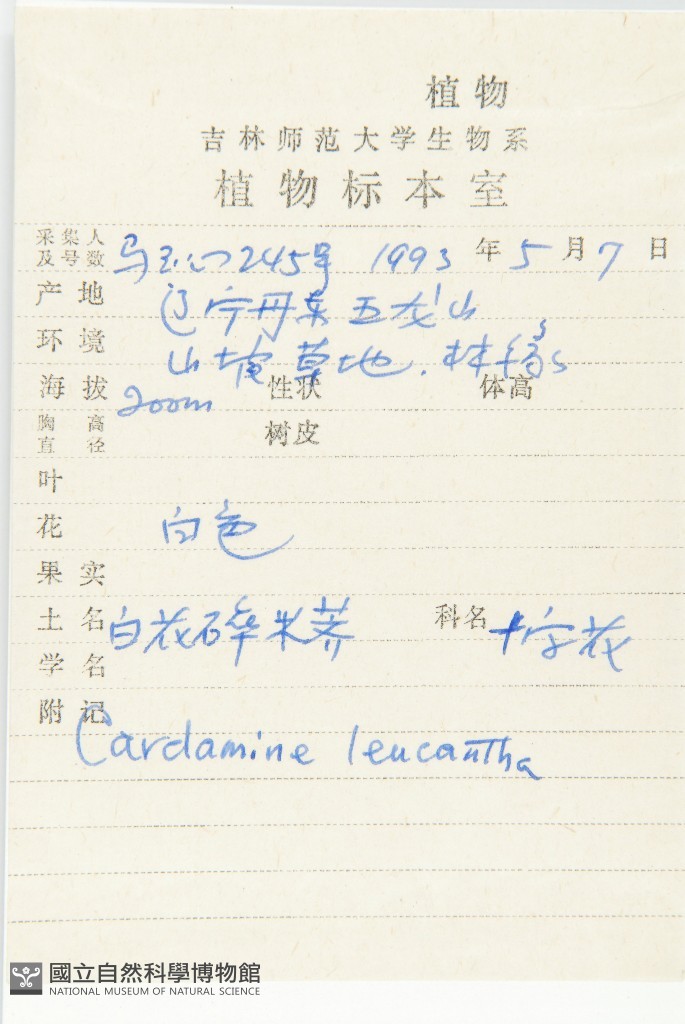 植物
吉林师范大学生物系
植物标本室
采集人及号数 马 245号 1993年5月7日
产地 辽宁丹东五龙山
环境 山坡草地.林缘
海拔 200m 性状 体高
胸高直径 树皮
叶
花 白色
果实
土名 白花碎米荠 科名 十字花
学名
附记
Cardamine leucantha
國立自然科學博物館
NATIONAL MUSEUM OF NATURAL SCIENCE